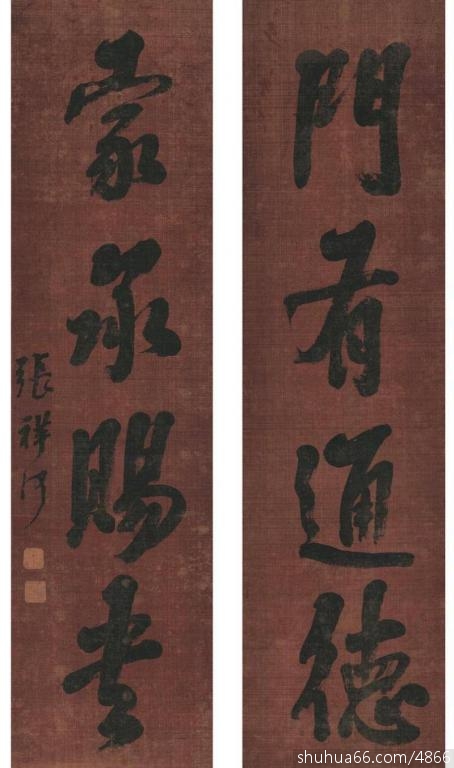 門有通德
家承賜書
張祥河
shuhua66.com/4866